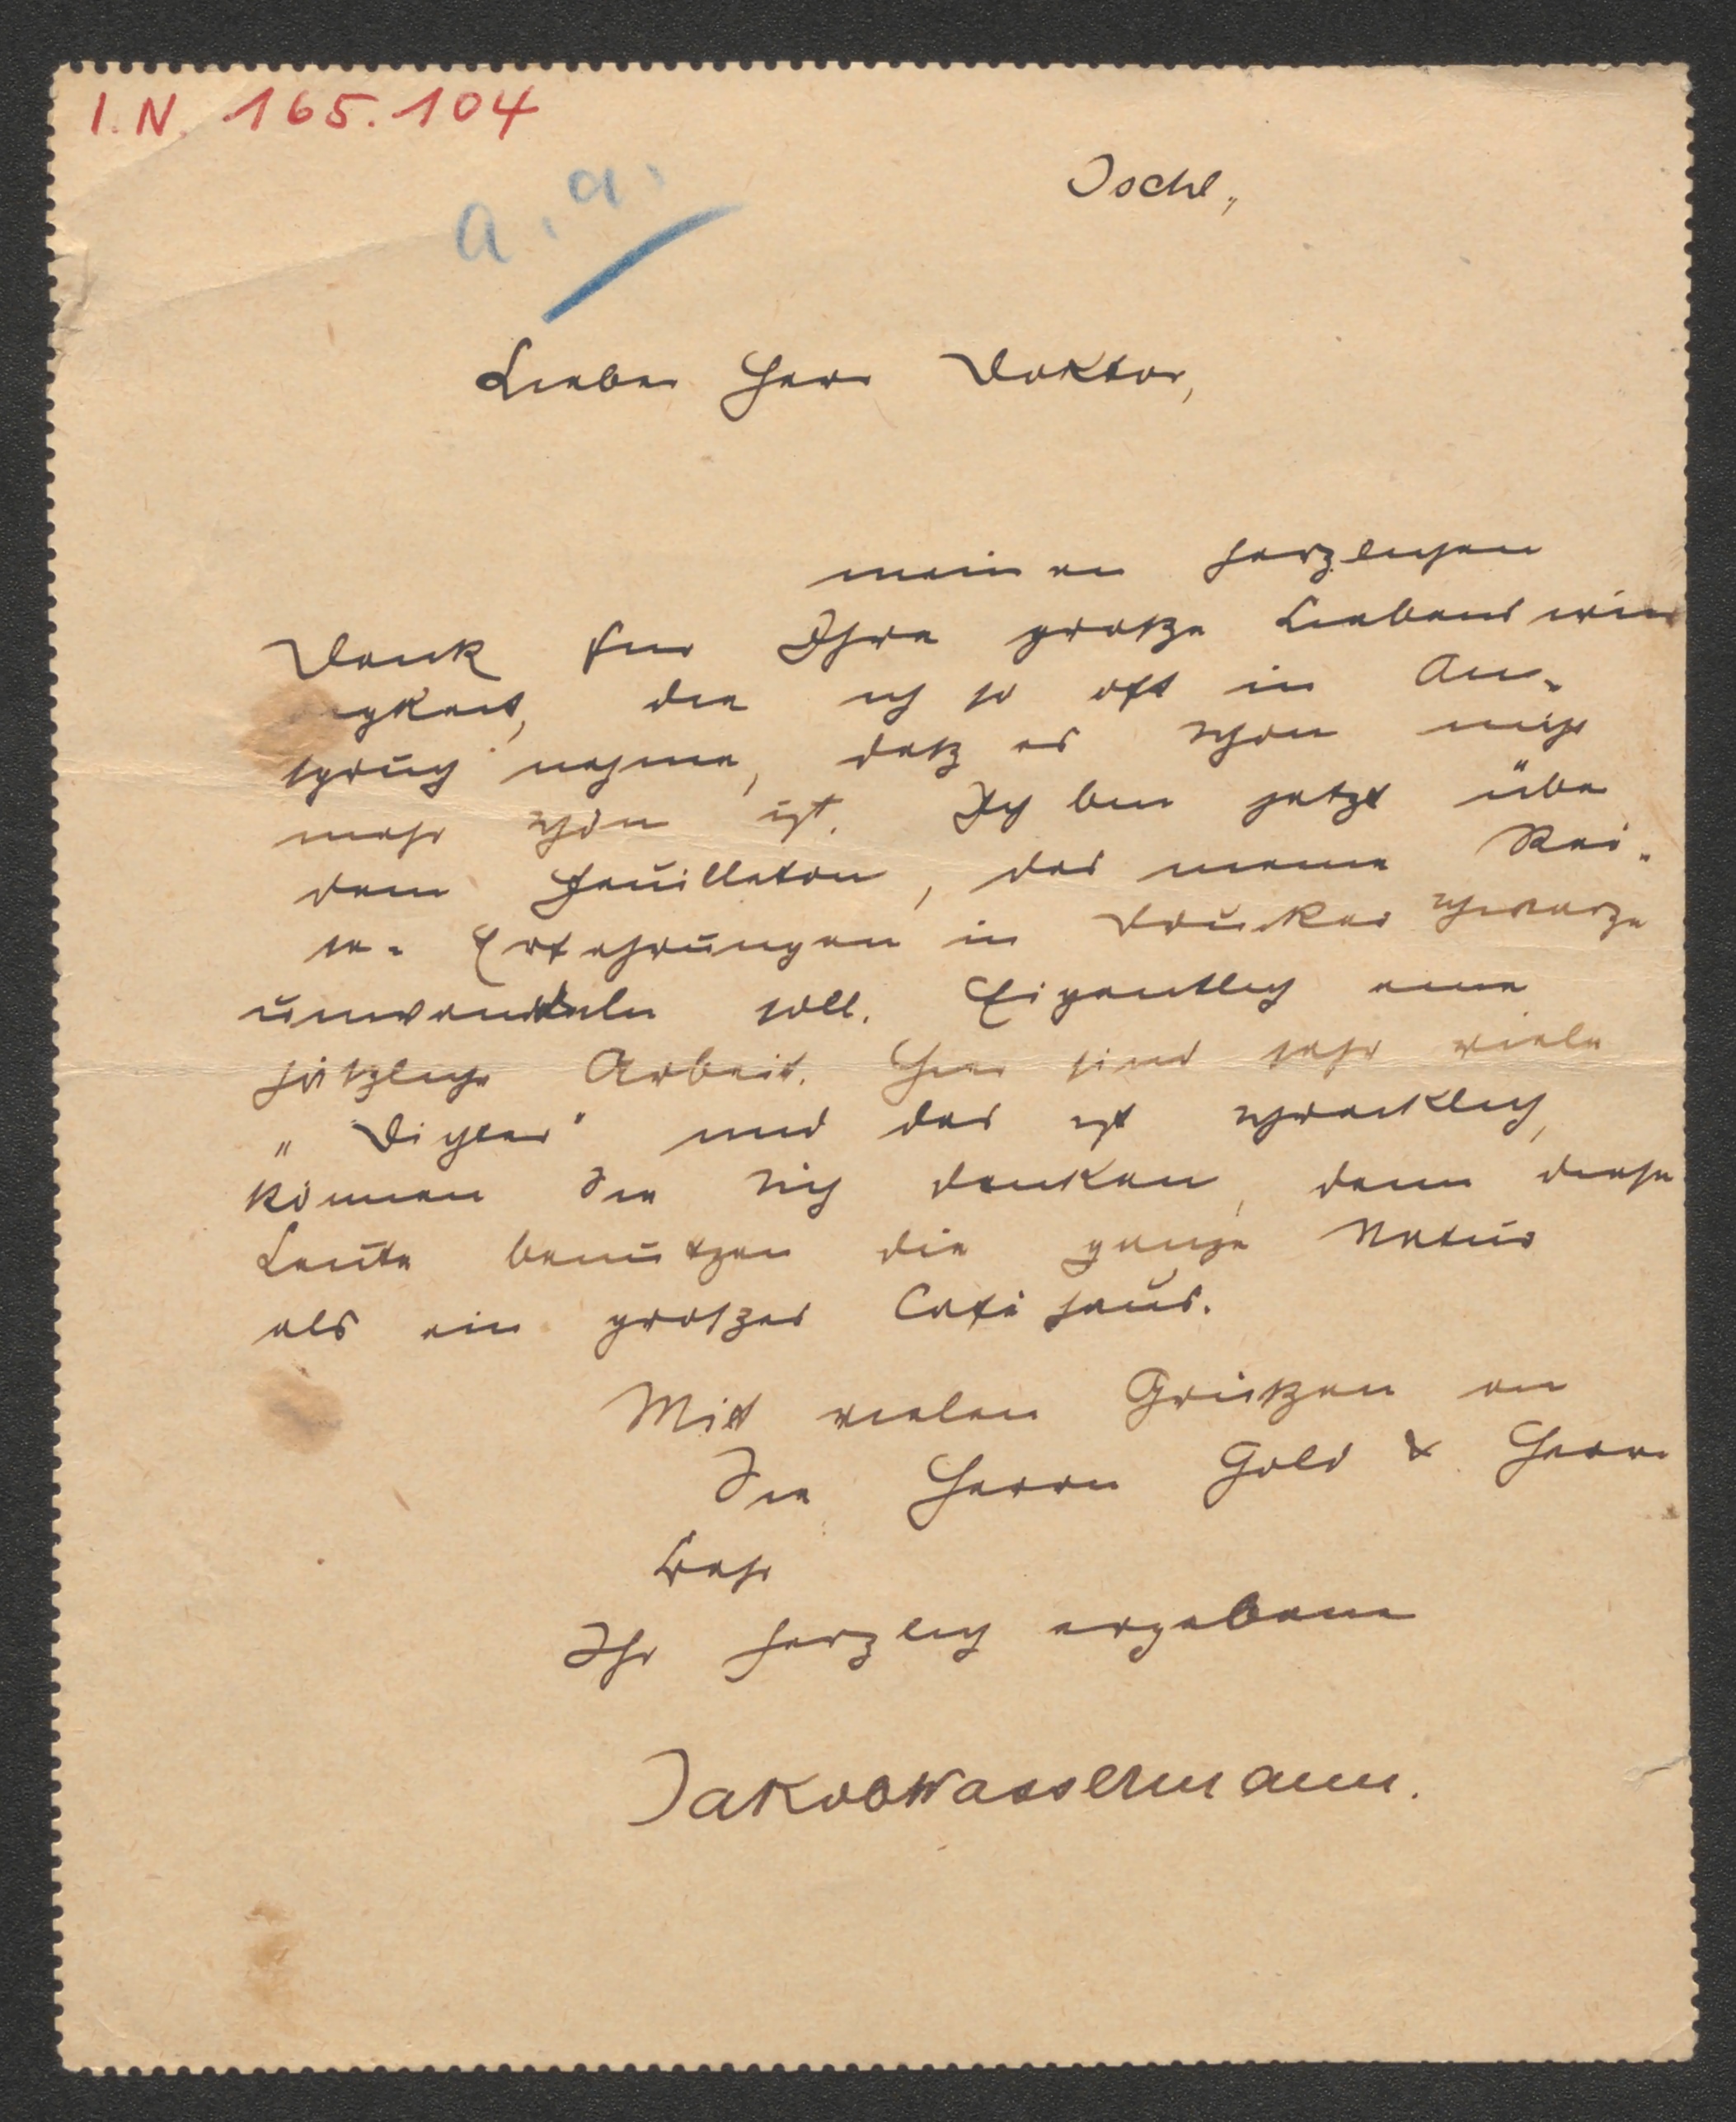 I.N. 165.104
a. a.
Ischl,
Lieber Herr Doktor,
meinen herzlichen
Dank für Ihre große Liebenswür
igkeit, die ich so oft in An-
spruch nehme, daß es schon nicht
mehr schön ist. Ich bin jetzt über
dem Feuilleton, das meine Rei-
se-Erfahrungen in Druckerschwärze
umwandeln soll. Eigentlich eine
häßliche Arbeit. Hier sind sehr viele
„Dichter" und das ist schrecklich,
können Sie sich denken, denn diese
Leute benutzen die ganze Natur
als ein großes Caféhaus.
Mit vielen Grüßen an
Sie Herrn Gold & Herrn
Ihr herzlich ergebener
Jakob Wassermann.